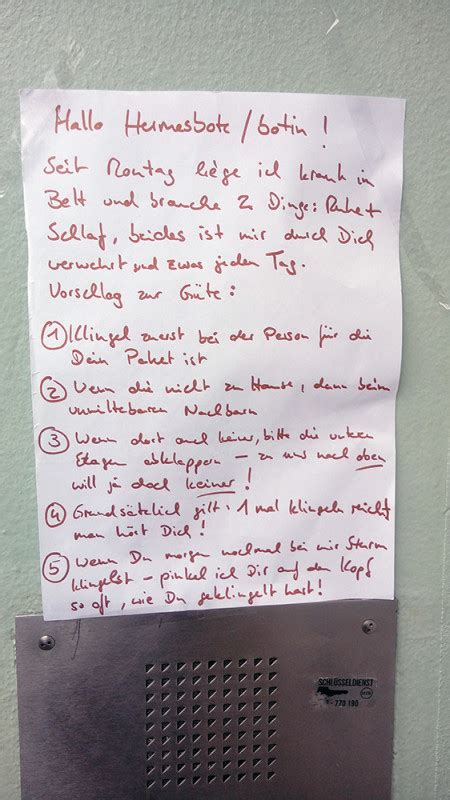 Hallo Hermesbote/botin!
Seit Montag liege ich krank in
Bett und brauche 2 Dinge: Ruhe+
Schlaf, beides ist mir durch Dich
verwehrt und zwar jeden Tag.
Vorschlag zur Güte:
① Klingel zuerst bei der Person für die
Dein Paket ist
② Wenn die nicht zu Hause, dann beim
unmittelbaren Nachbarn
③ Wenn dort auch keiner, bitte die unteren
Etagen abklappern – zu uns nach oben
will ja doch keiner!
④ Grundsätzlich gilt: 1 mal klingeln reicht,
man hört Dich!
⑤ Wenn Du morgen nochmal bei mir Sturm
klingelst – pinkel ich Dir auf den Kopf
so oft, wie Du geklingelt hast!
SCHLÜSSELDIENST
770 190